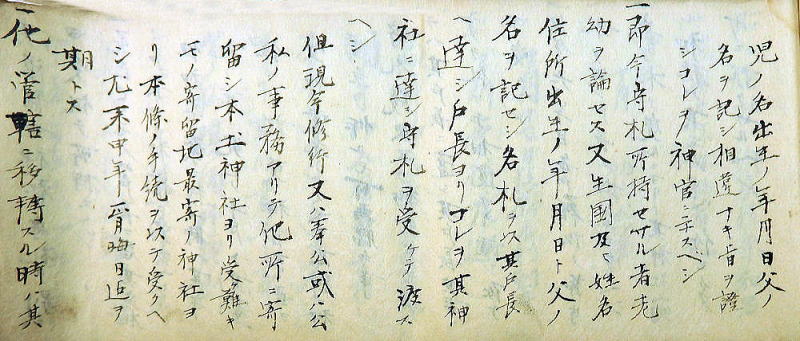 児ノ名出生ノ年月日父ノ
名ヲ記シ相違ナキ旨ヲ證
シコレヲ神官ニ示スベシ
一即今守札所持セサル者老
幼ヲ論セス又生國及ヒ姓名
住所出生ノ年ノ月日ト父ノ
名ヲ記セシ名札ヲ以其戸長
ヘ達シ戸長ヨリコレヲ其神
社ニ達シ守札ヲ受ケテ渡ス
ヘシ
但現今修行又ハ奉公或ハ公
私ノ事務アリテ他所ニ寄
留シ本土神社ヨリ受難キ
モノ寄留地最寄ノ神社ヨ
リ本條ノ手続ヲ以テ受クヘ
シ尤来申年正月晦日迄ヲ
期トス
一他ノ管轄ニ移轉スル時ハ其